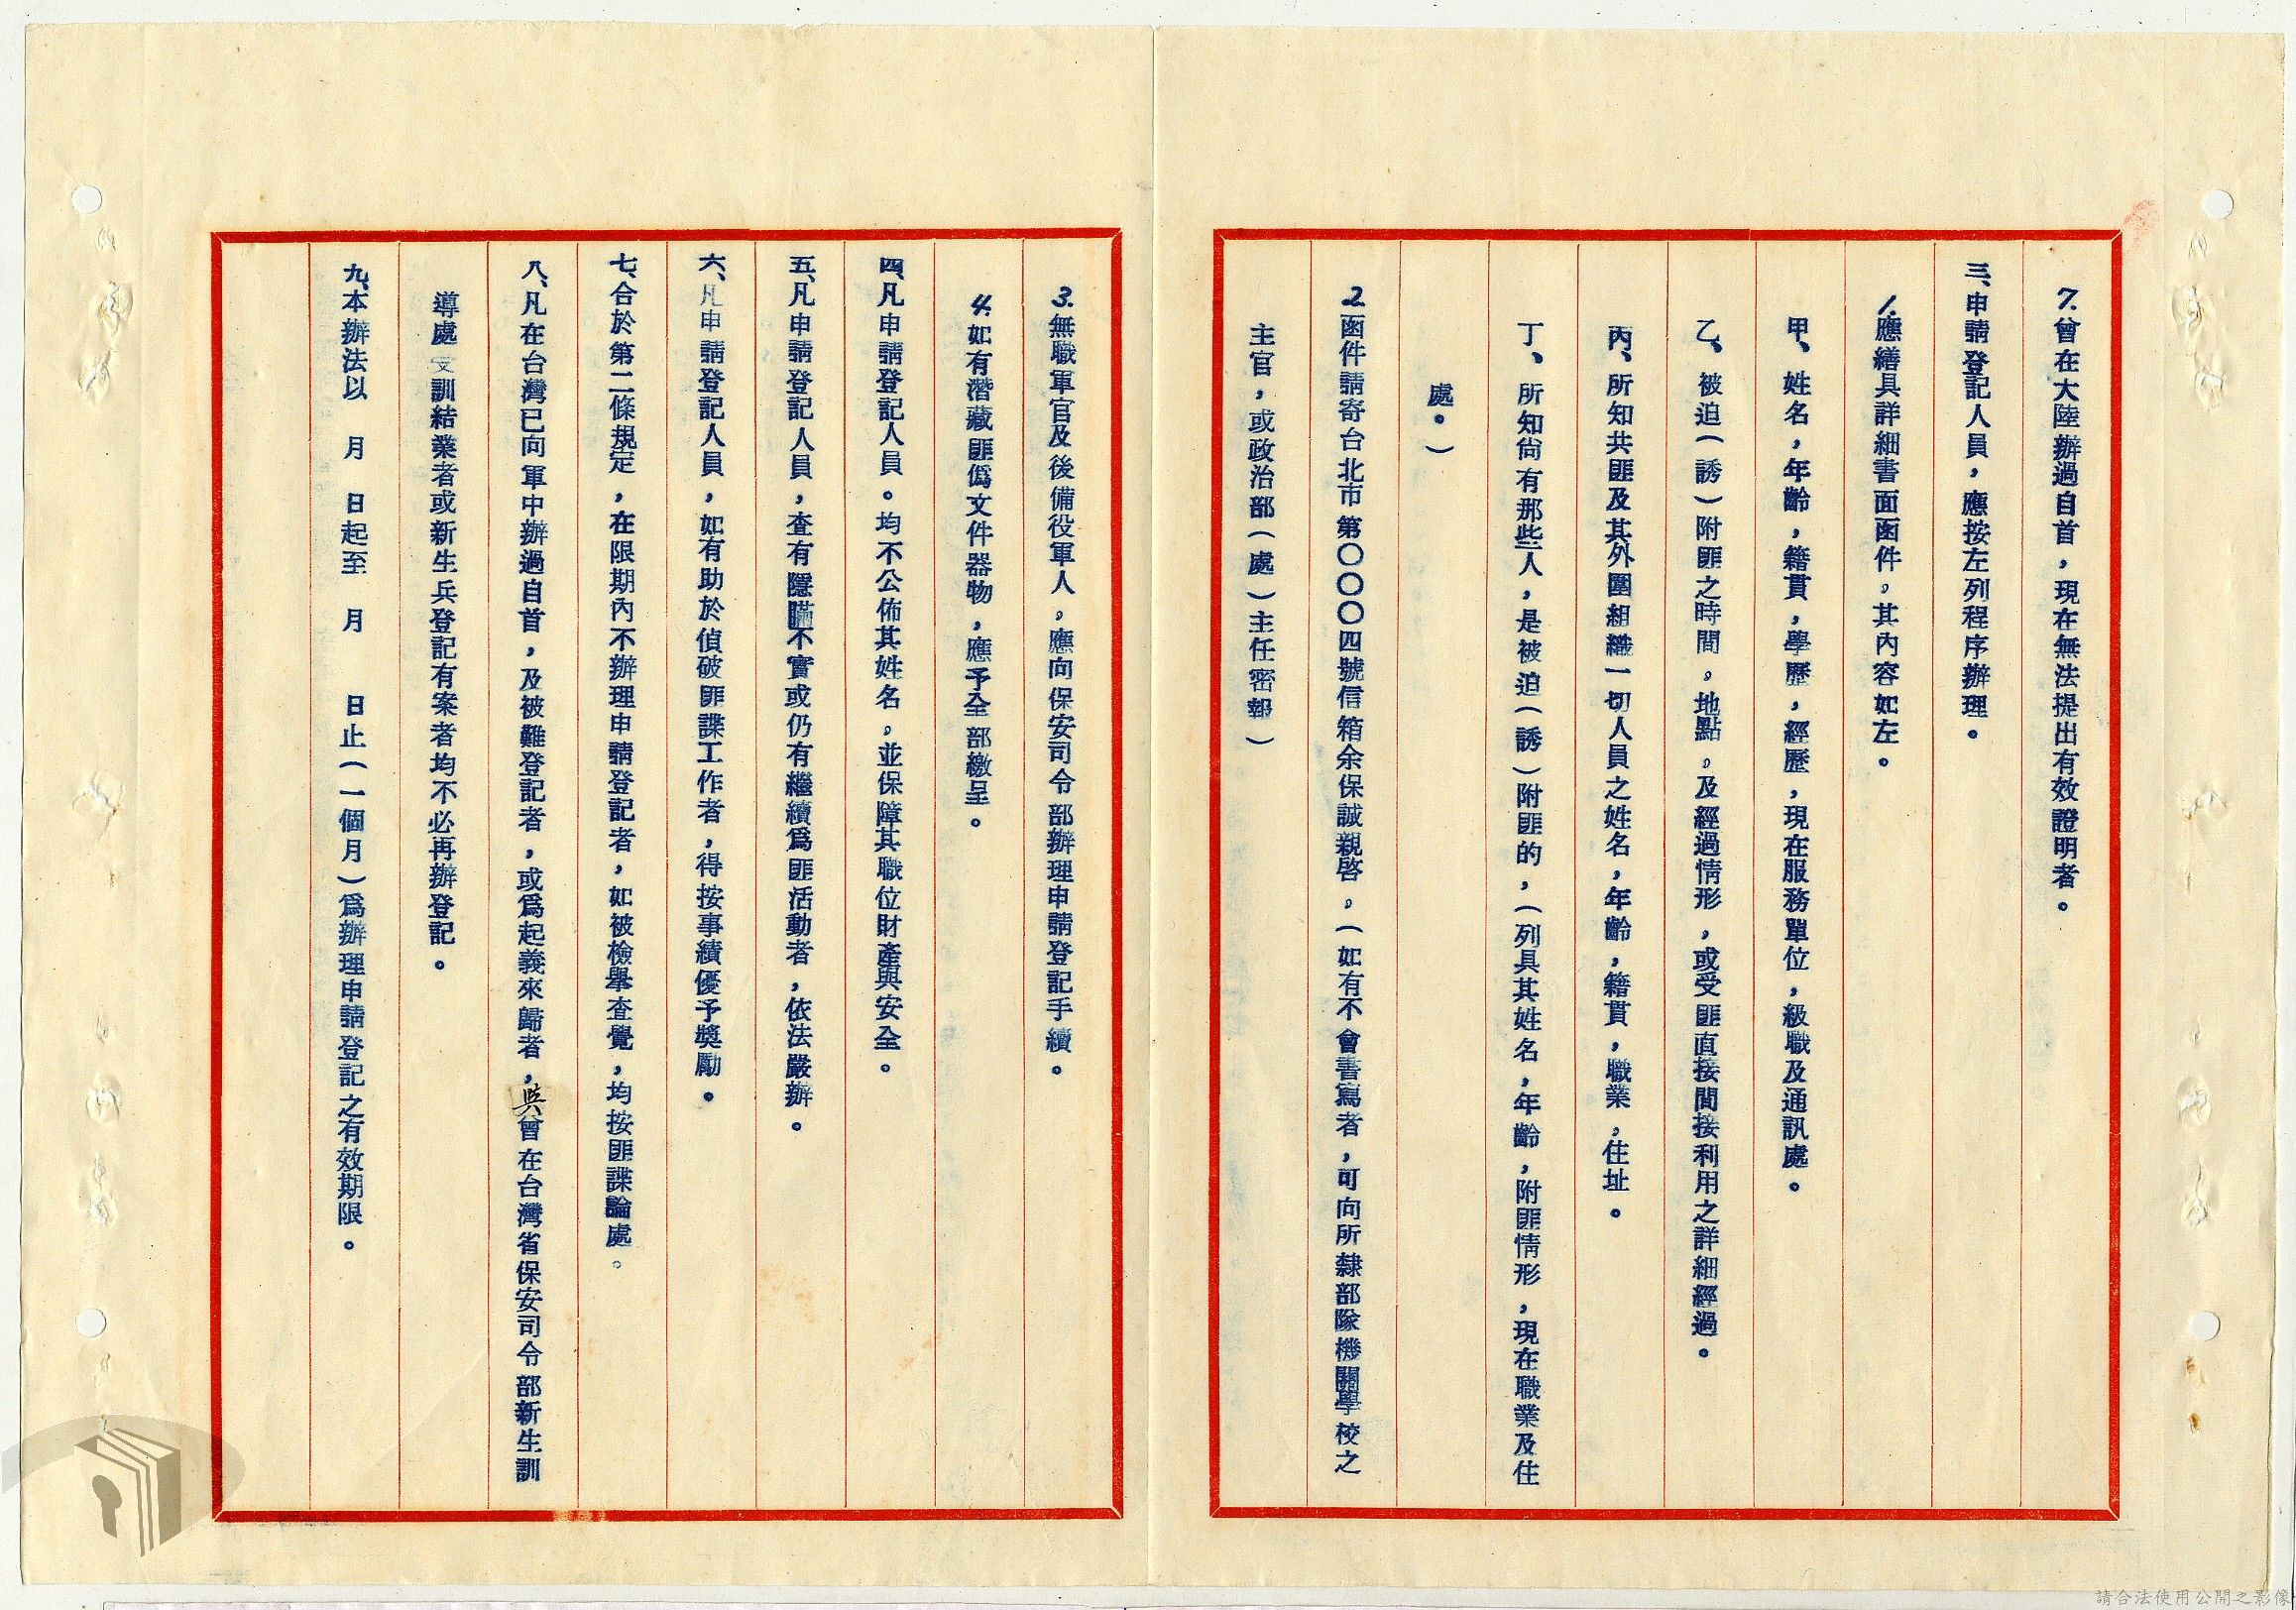 7.曾在大陸辦過自首，現在無法提出有效證明者。
三、申請登記人員，應按左列程序辦理。
1.應繕具詳細書面函件。其內容如左。
甲、姓名，年齡，籍貫，學歷，經歷，現在服務單位，級職及通訊處。
乙、被迫（誘）附匪之時間。地點。及經過情形，或受匪直接間接利用之詳細經過。
丙、所知共匪及其外圍組織一切人員之姓名，年齡，籍貫，職業，住址。
丁、所知尙有那些人，是被迫（誘）附匪的，（列具其姓名，年齡，附匪情形，現在職業及住
處。）
2.函件請寄台北市第〇〇〇四號信箱余保誠親啓。（如有不會書寫者，可向所隸部隊機關學校之
主官，或政治部（處）主任密報）
3.無職軍官及後備役軍人。應向保安司令部辦理申請登記手續。
4.如有潛藏匪僞文件器物，應予全部繳呈。
四、凡申請登記人員。均不公佈其姓名。並保障其職位財產與安全。
五、凡申請登記人員，查有隱瞞不實或仍有繼續爲匪活動者，依法嚴辦。
六、凡申請登記人員，如有助於偵破匪諜工作者，得按事績優予獎勵。
七、合於第二條規定，在限期內不辦理申請登記者，如被檢舉查覺，均按匪諜論處。
八、凡在台灣已向軍中辦過自首，及被難登記者，或爲起義來歸者，與曾在台灣省保安司令部新生訓
導處受訓結業者或新生兵登記有案者均不必再辦登記。
九、本辦法以　月　日起至　月　日止（一個月）爲辦理申請登記之有效期限。
請合法使用公開之影像